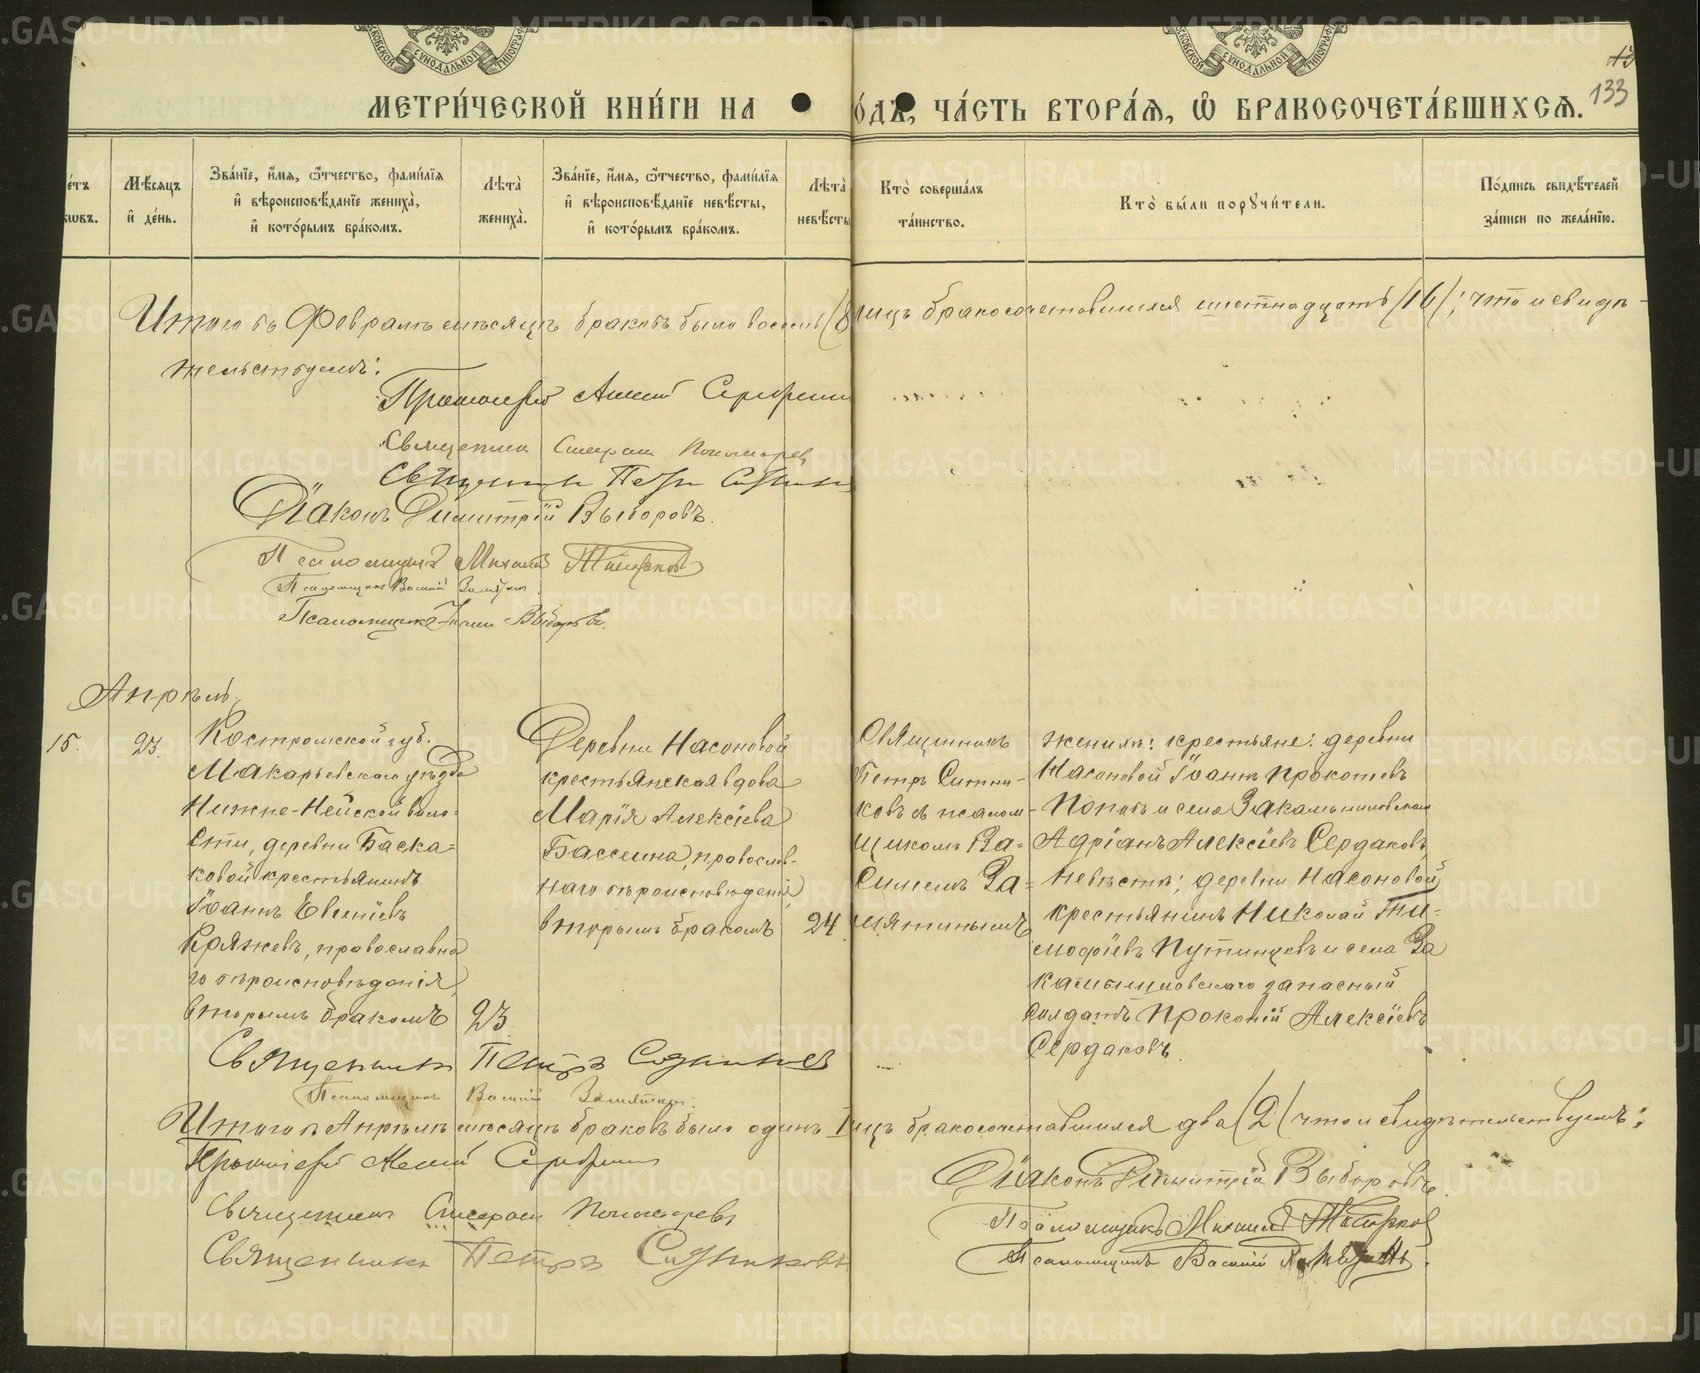 МОСКОВСКОЙ СѴНОДАЛЬНОЙ ТИПОГРАФ
МОСКОВСКОЙ СѴНОДАЛЬНОЙ ТИПОГРАФ
133
МЕТРИ́ЧЕСКОЙ КНИ́ГИ НА
О́ДЪ, ЧА́СТЬ ВТОРА́Ѧ, Ѽ БРАКОСОЧЕТА́ВШИХСѦ.
е́тъ
кѡвъ.
Мѣ́сѧцъ
и҆ де́нь.
Зва́нїе, и҆́мѧ, ѻ҆́тчество, фами́лїѧ
и҆ вѣроисповѣ́данїе жениха̀,
и҆ кото́рымъ бра́комъ.
Лѣта̀
жениха̀.
Зва́нїе, и҆́мѧ, ѻ҆́тчество, фами́лїѧ
и҆ вѣроисповѣ́данїе невѣ́сты,
и҆ кото́рымъ бра́комъ.
Лѣта̀
невѣ́сты
Кто̀ соверша́лъ
та́инство.
Кто̀ бы́ли порꙋчи́тели.
По́дпись свидѣ́телей
за́писи по жела́нїю.
Итого въ Февралѣ мѣсяцѣ браковъ было восемь (8
лицъ бракосочетавшихся шестнадцать (16), что и свидѣ-
тельствуемъ:
Протоіерей
Священник Пономарев
Священник Петр
Діаконъ Димитрій Выборовъ.
Псаломщикъ Михаилъ
Псаломщикъ Василій
Псаломщикъ Выборовъ.
Апрѣль
15.
23.
Костромской губ.
Макарьевскаго уѣзда
Нижне-Нейской воло-
сти, деревни Баска-
ковой крестьянинъ
Іоаннъ Евгеніевъ
Кряжевъ, православна
го вѣроисповѣданія,
вторымъ бракомъ
23.
Деревни Насоновой
крестьянская вдова
Марія Алексіева
Бассеина, православ-
наго вѣроисповѣданія,
вторымъ бракомъ
24
Священникъ
Петръ Ситни-
ковъ съ псалом-
щикомъ Ва-
силіемъ За-
мятинымъ
жениха: крестьяне: деревни
Насоновой Іоаннъ Прокопіевъ
Поповъ и села Закамышловскаго
Адріанъ Алексіевъ Сердаковъ,
Невѣсты; деревни Насоновой
крестьянинъ Николай Ти-
мофіевъ Путинцевъ и села За
камышловскаго запасный
солдатъ Прокопій Алексіевъ
Сердаковъ.
Священникъ Петръ Ситниковъ
Псаломщикъ Василій Замятинъ.
Итого въ Апрѣлѣ мѣсяцѣ браковъ было одинъ 1
лицъ бракосочетавшихся два (2) что и свидѣтельствуемъ:
Протоіерей
Священникъ Пономаревъ
Священникъ Петръ Ситниковъ
Діаконъ Димитрій Выборовъ.
Псаломщикъ Михаилъ
Псаломщикъ Василій Замятинъ.
METRIKI.GASO-URAL.RU